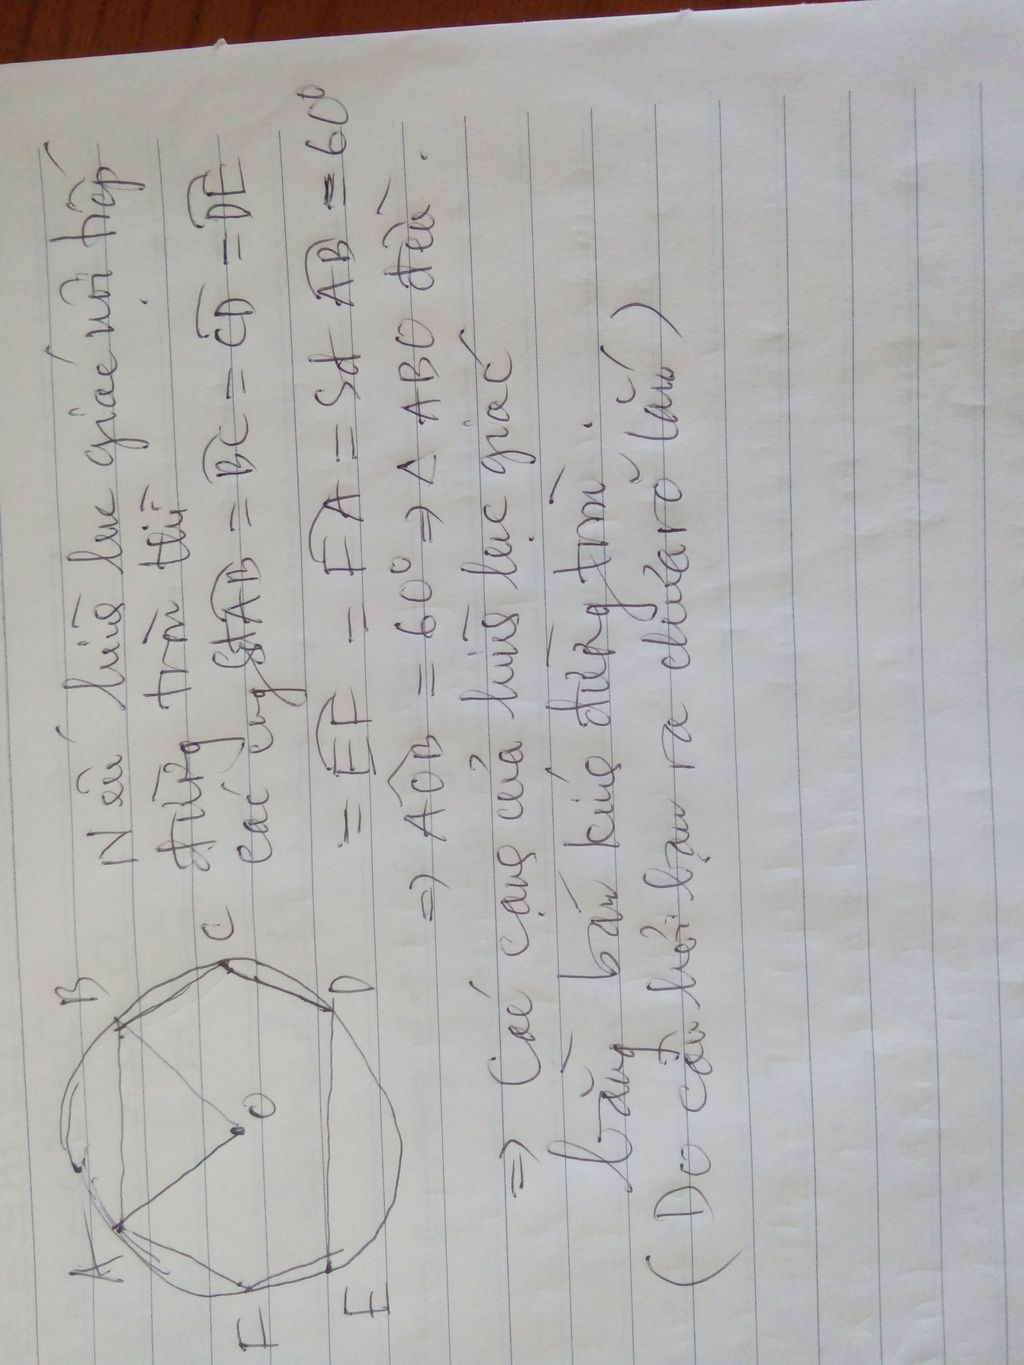 Nếu hình lục giác nội tiếp
đường tròn thì
các cung Sđ AB = BC = CD = DE
= EF = FA = Sđ AB = 60⁰
=> AOB = 60⁰ => Δ ABO đều.
=> Các cạnh của hình lục giác
bằng bán kính đường tròn.
(Do câu hỏi bạn ra chưa rõ lắm)
A
B
C
D
E
F
O